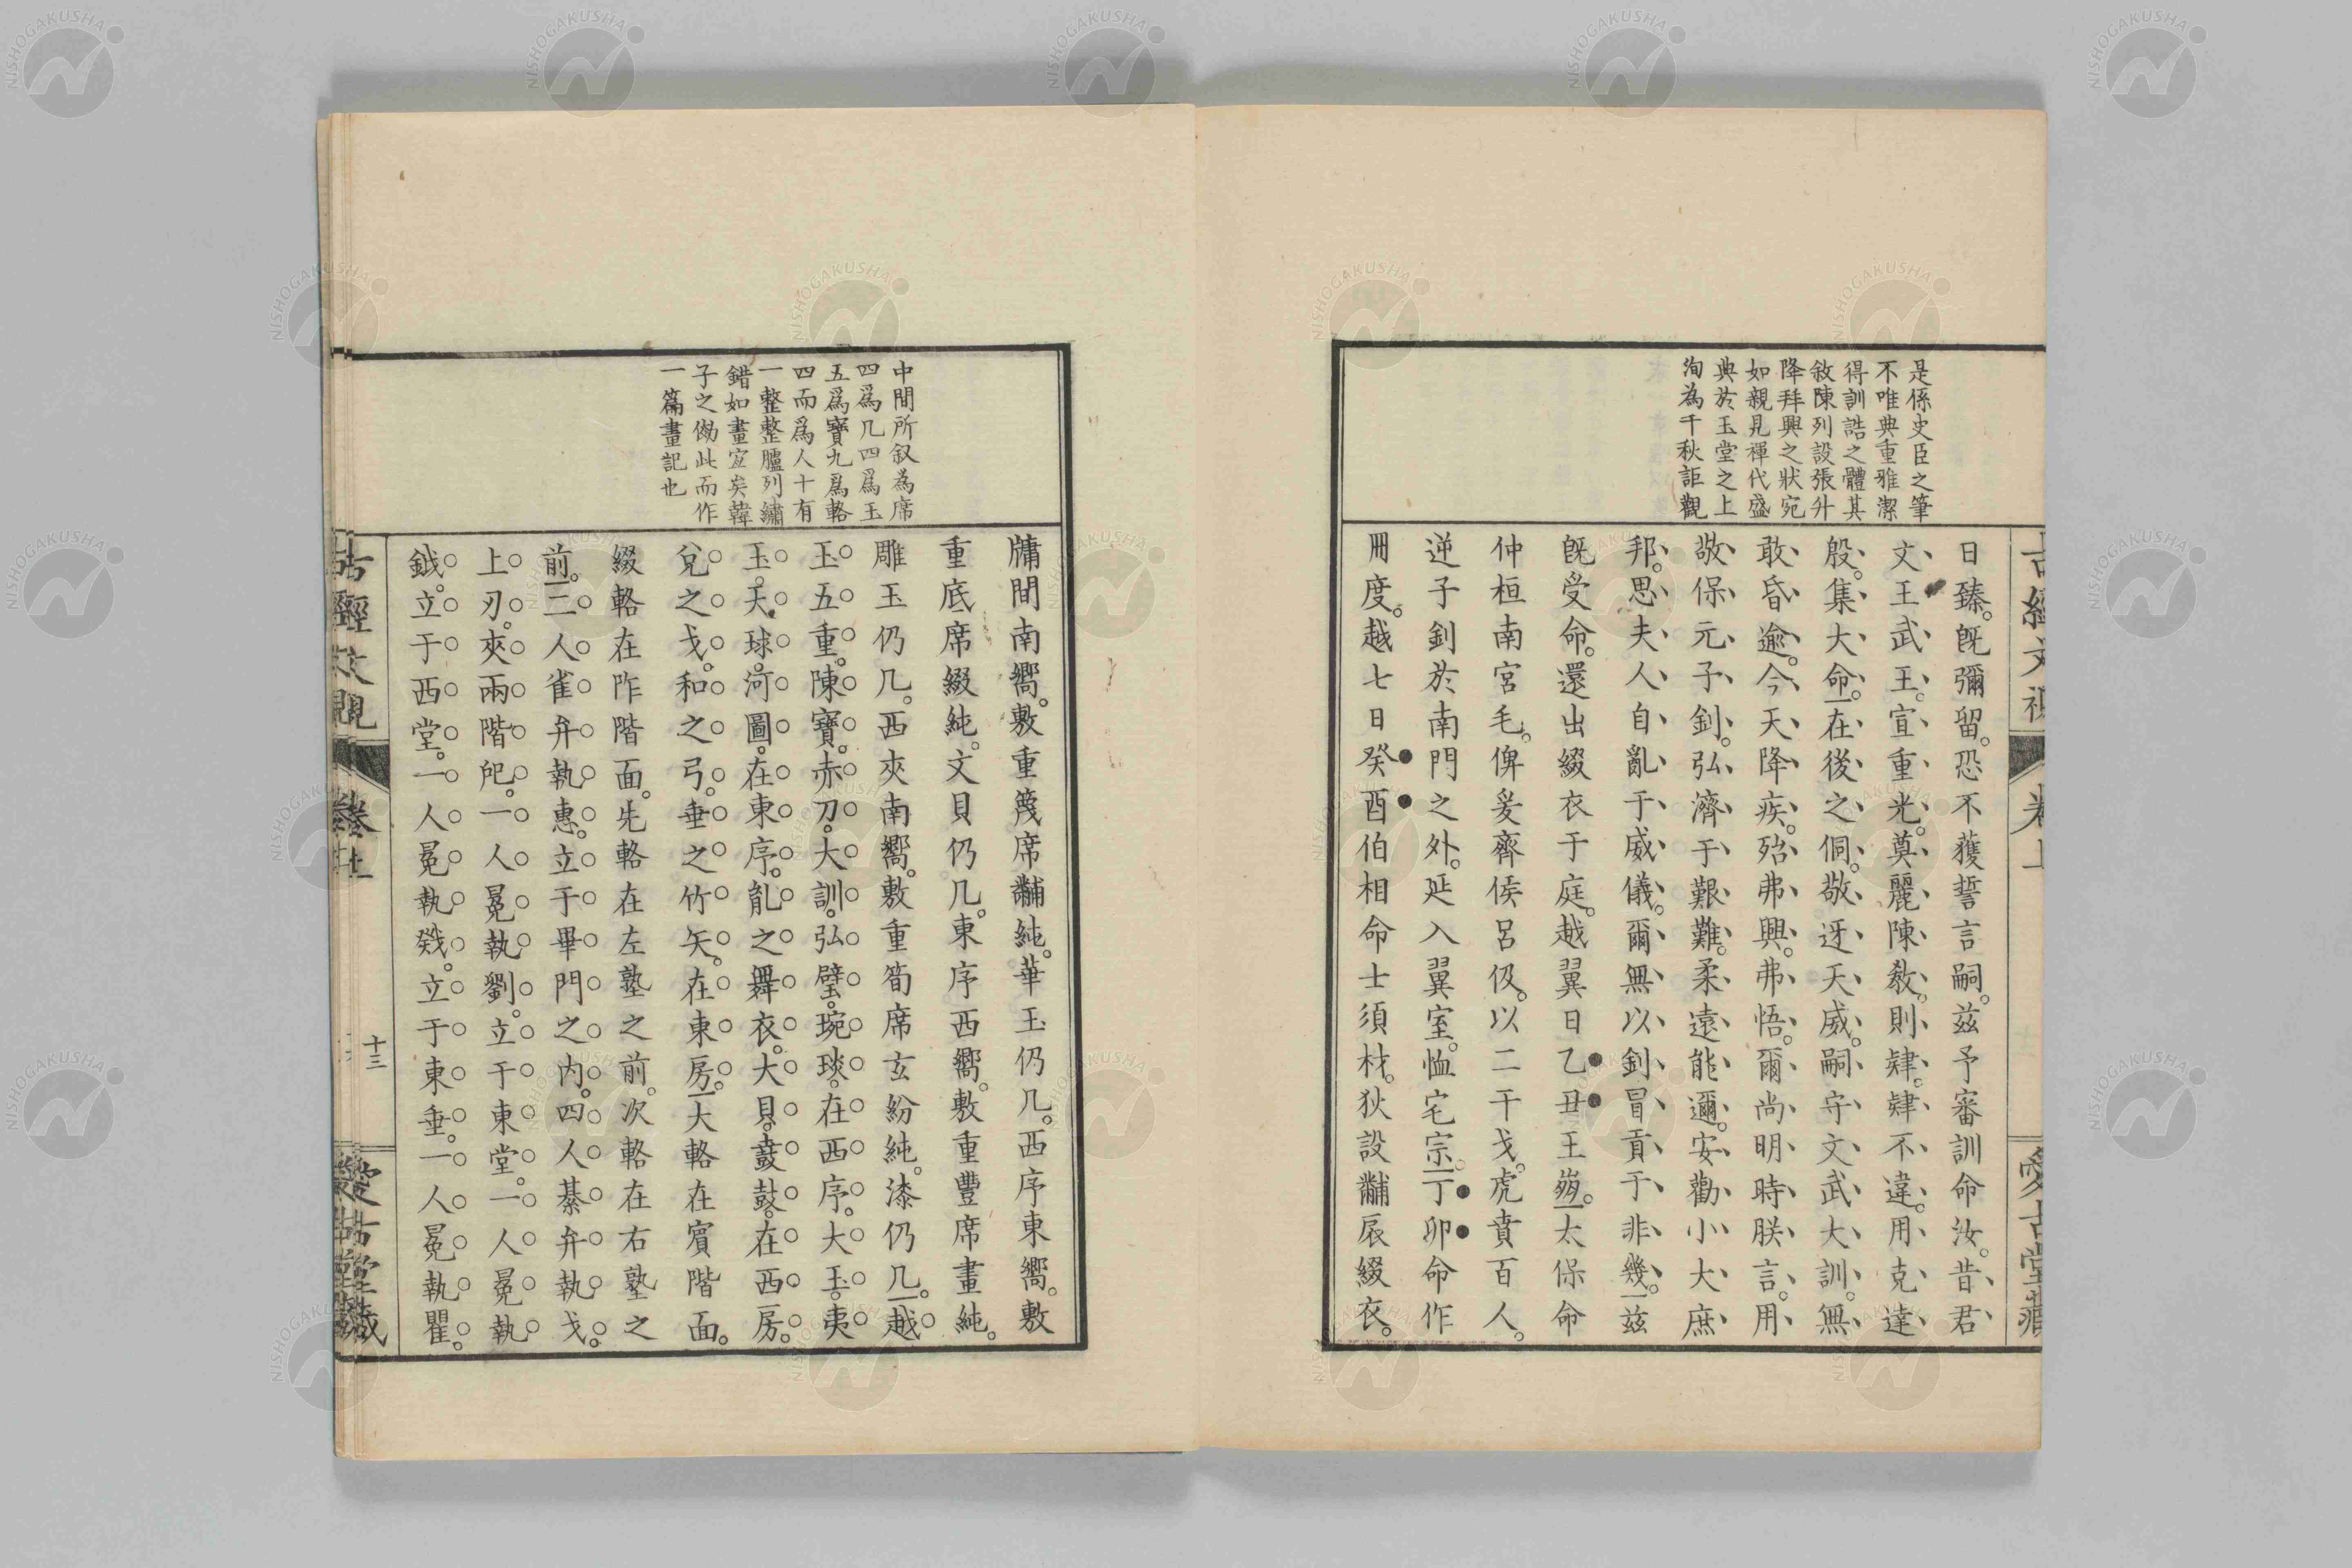 是係史臣之筆
不唯典重雅潔
得訓誥之體其
敘陳列設張升
降拜興之狀宛
如親見禪代盛
典於玉堂之上
洵為千秋詎觀
日臻。既彌留。恐不獲誓言嗣。茲予審訓命汝。昔君
文王武王。宣重光。奠麗陳敎。則肄。肄不違。用克達
殷。集大命。在後之侗。敬迓天威。嗣守文武大訓。無
敢昏逾。今天降疾。殆弗興。弗悟。爾尚明時朕言。用
敬保元子釗。弘濟于艱難。柔遠能邇。安勸小大庶
邦。思夫人自亂于威儀。爾無以釗冒貢于非幾。茲
既受命。還出綴衣于庭。越翼日乙丑王崩。太保命
仲桓南宮毛。俾爰齊侯呂伋。以二干戈。虎賁百人。
逆子釗於南門之外。延入翼室。恤宅宗。丁卯命作
冊度。越七日癸酉伯相命士須材。狄設黼扆綴衣。
古經文視
卷上
愛古堂藏
中間所叙為席
四爲几四爲玉
五爲寶九爲輅
四而爲人十有
一整整臚列繡
錯如畫宜矣韓
子之倣此而作
一篇畫記也
牖間南嚮。敷重篾席黼純。華玉仍几。西序東嚮。敷
重底席綴純。文貝仍几。東序西嚮。敷重豐席畫純。
雕玉仍几。西夾南嚮。敷重筍席玄紛純。漆仍几。越
玉五重。陳寶。赤刀。大訓。弘璧。琬琰。在西序。大玉。夷
玉。天球。河圖。在東序。胤之舞衣。大貝。鼖鼓。在西房。
兌之戈。和之弓。垂之竹矢。在東房。大輅在賓階面。
綴輅在阼階面。先輅在左塾之前。次輅在右塾之
前。二人雀弁執惠。立于畢門之內。四人綦弁執戈。
上刃。夾兩階戺。一人冕執劉。立于東堂。一人冕執
鉞。立于西堂。一人冕執戣。立于東垂。一人冕執瞿。
卷上
十三